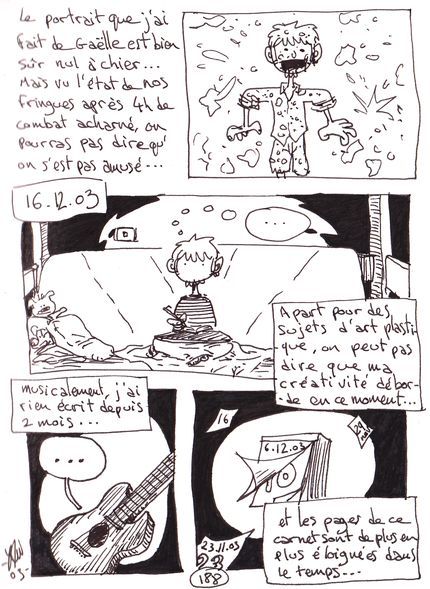 Le portrait que j'ai
fait de Gaëlle est bien
sûr nul à chier...
Mais vu l'état de nos
fringues après 4h de
combat acharné, on
pourras pas dire qu'
on s'est pas amusé...
16.12.03
...
A part pour des
sujets d'art plasti-
que, on peut pas
dire que ma
créativité débor-
de en ce moment...
musicalement, j'ai
rien écrit depuis
2 mois...
...
16
6.12.03
23.11.03
23
et les pages de ce
carnet sont de plus en
plus éloignées dans
le temps...
03
188